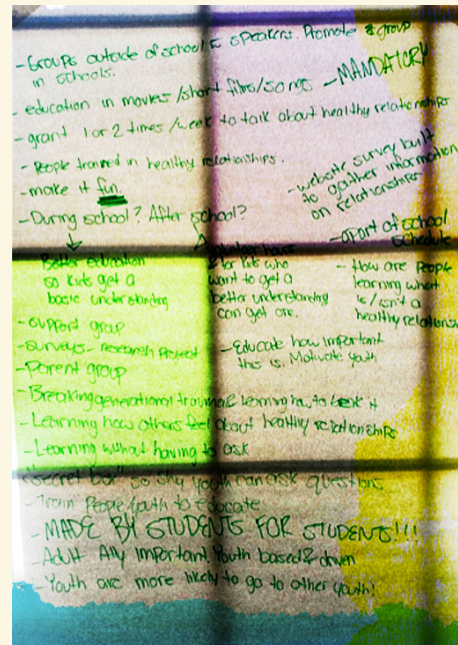 - Groups outside of school & speakers. Promote a group
in schools.
- education in movies / short films/songs - MANDATORY
- grant 1 or 2 times /week to talk about healthy relationships
- People trained in healthy relationships.
- make it fun.
- website survey built
to gather information
on relationships
- During school? After school?
- apart of school
schedule
Better education
so kids get a
basic understanding
for kids who
want to get a
better understanding
can get one.
- How are people
learning what
is/isn't a
healthy relationship
- support group
- surveys - research project
- Parent group
- Educate how important
this is. Motivate youth
- Breaking generational trauma & learning how to break it
- Learning how others feel about healthy relationships
- Learning without having to ask
"Secret box" so shy youth can ask questions
- Train people/youth to educate
- MADE BY STUDENTS FOR STUDENTS!!!
- Adult Ally important. Youth based & driven
- Youth are more likely to go to other youth!